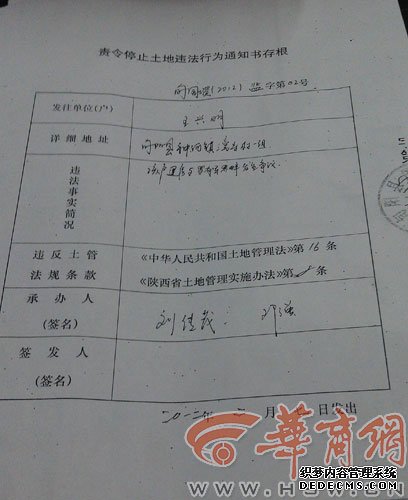 责令停止土地违法行为通知书存根
旬国资(2012)监字第02号
发往单位(户)
王兴明
详细地址
旬阳县
镇
村一组
违法事实简况
该户建房与
发生争议
违反土管
法规条款
《中华人民共和国土地管理法》第16条
《陕西省土地管理实施办法》第 条
承办人
(签名)
刘佳
邓
签发人
(签名)
二0一二年二月 日发出
华商网
WWW.HSW.CN
织梦内容管理系统
DEDECMS.COM